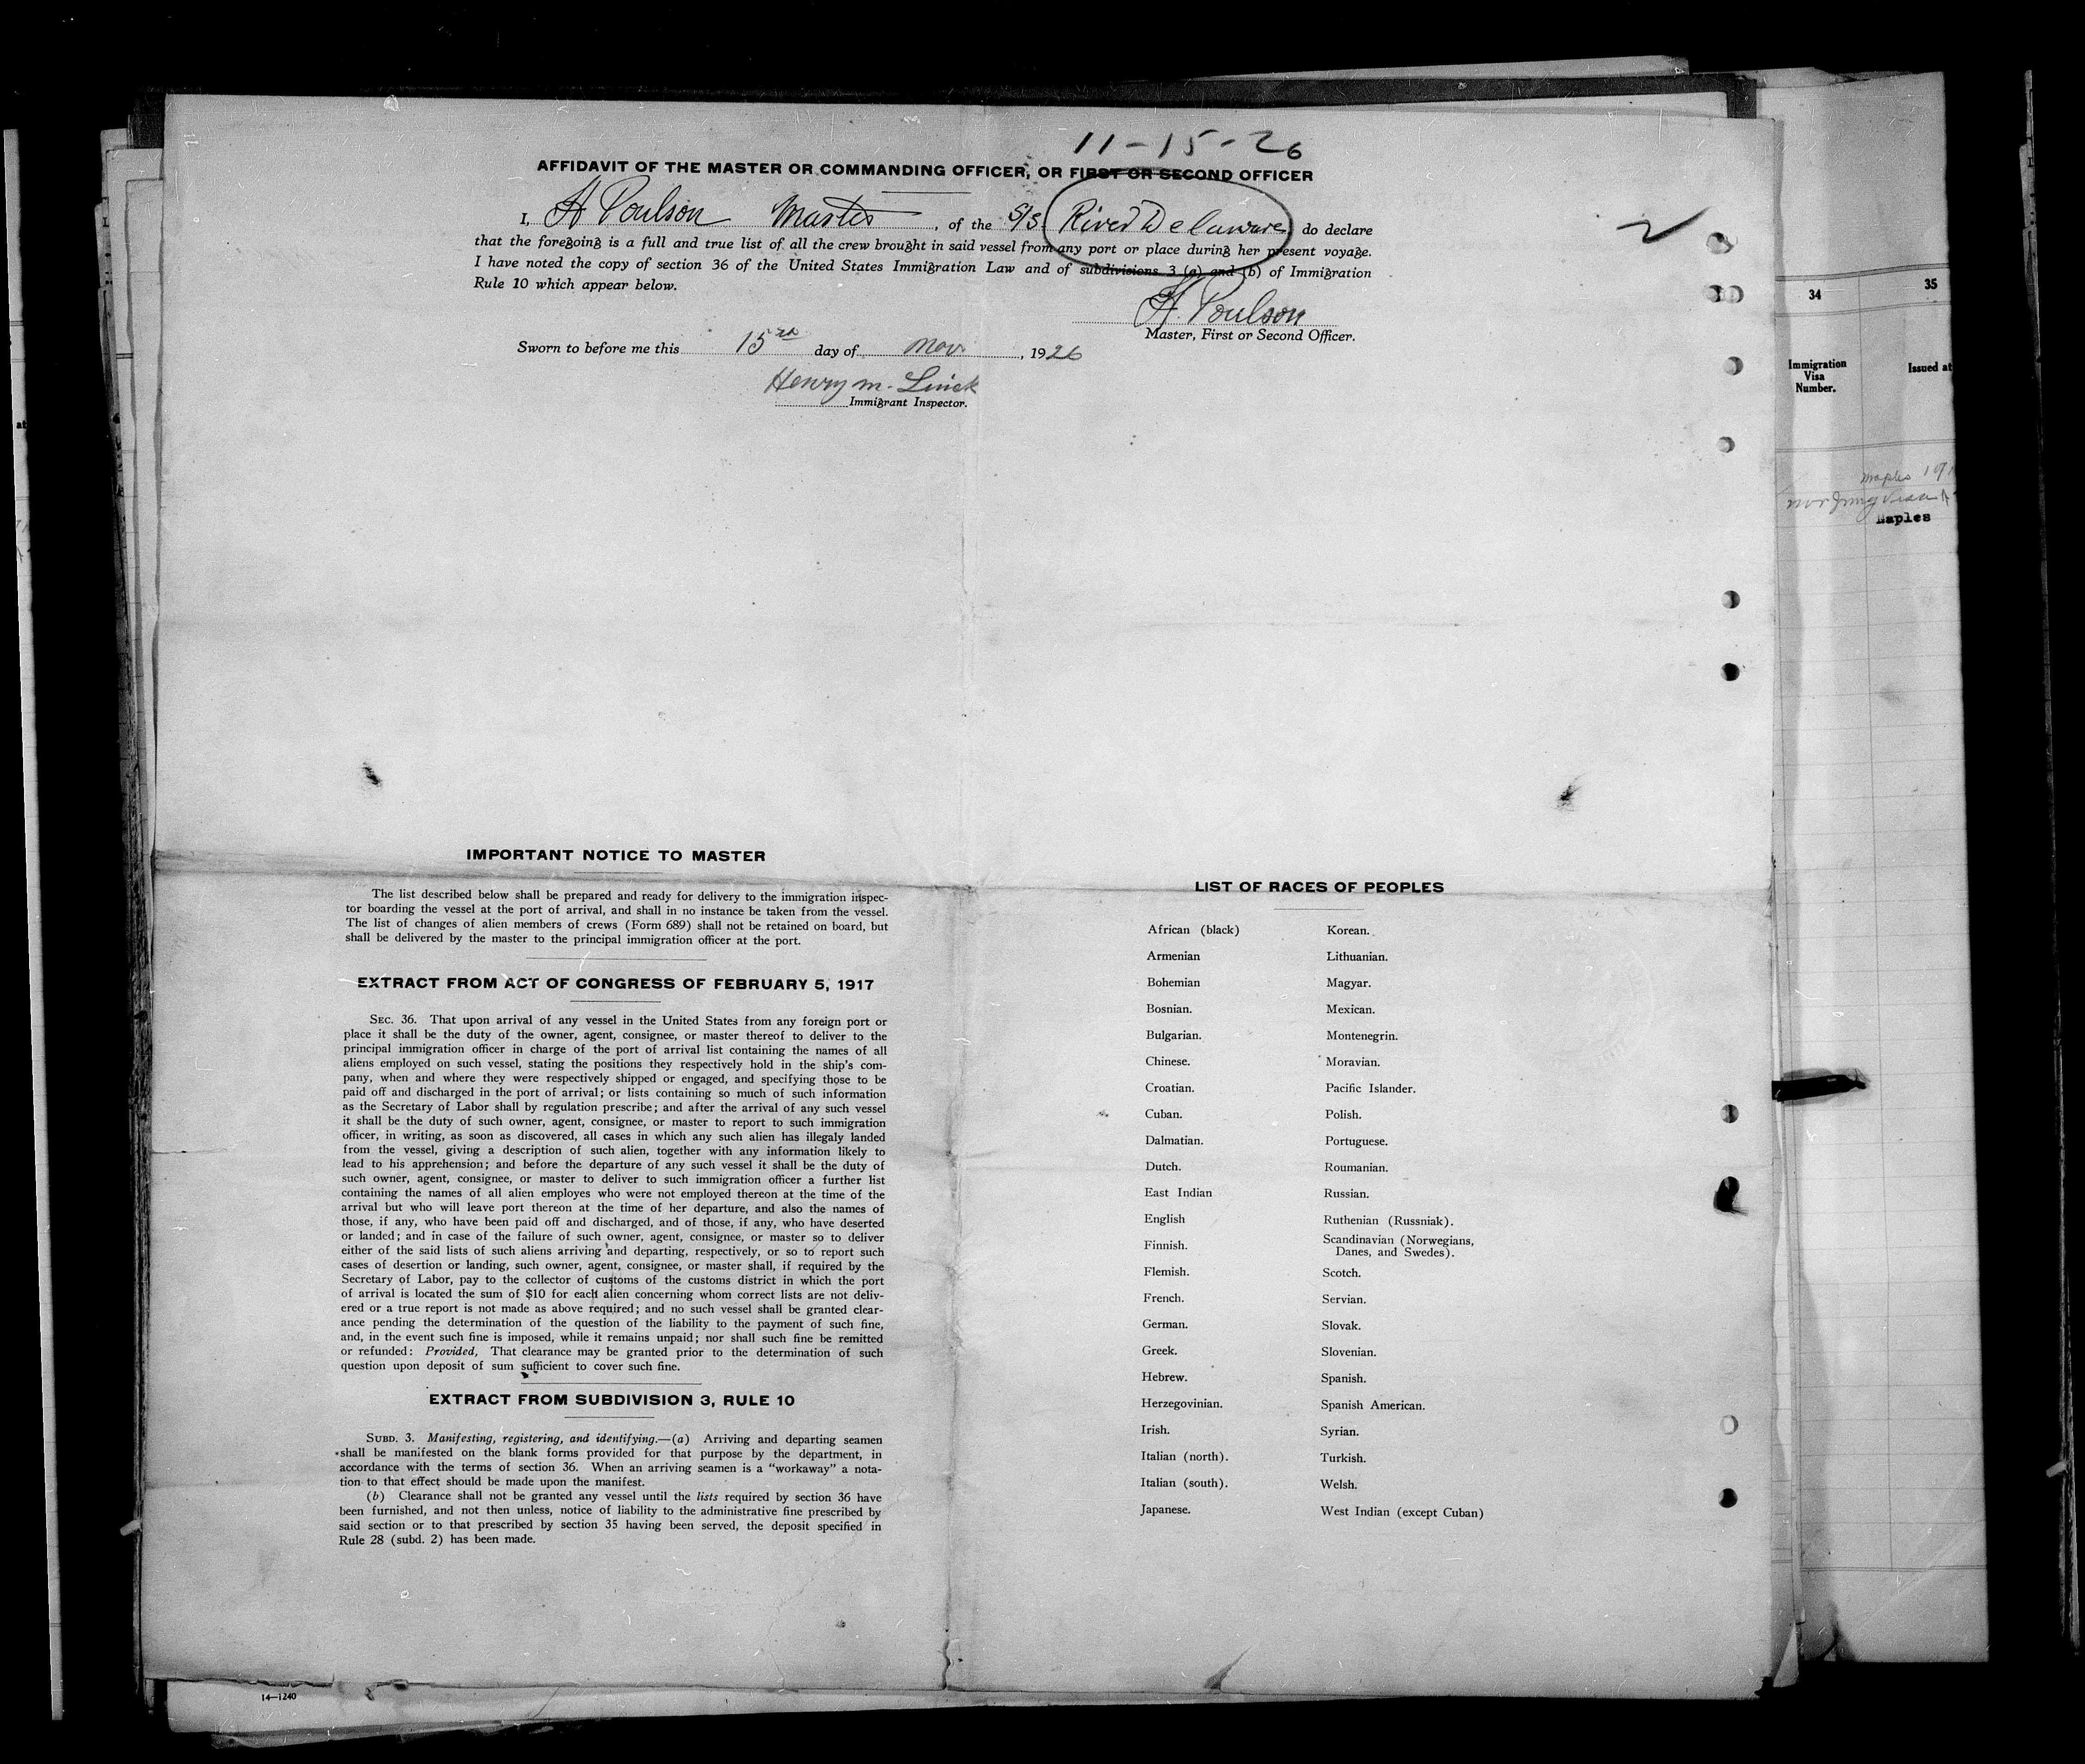 11-15-26
AFFIDAVIT OF THE MASTER OR COMMANDING OFFICER, OR FIRST OR SECOND OFFICER
I, H Poulson Master, of the S/S River Delaware do declare
that the foregoing is a full and true list of all the crew brought in said vessel from any port or place during her present voyage.
I have noted the copy of section 36 of the United States Immigration Law and of subdivisions 3 (a) and (b) of Immigration
Rule 10 which appear below.
H. Poulson
Master, First or Second Officer.
Sworn to before me this 15 day of Nov. , 1926
Henry M.
Immigrant Inspector.
IMPORTANT NOTICE TO MASTER
The list described below shall be prepared and ready for delivery to the immigration inspec-
tor boarding the vessel at the port of arrival, and shall in no instance be taken from the vessel.
The list of changes of alien members of crews (Form 689) shall not be retained on board, but
shall be delivered by the master to the principal immigration officer at the port.
EXTRACT FROM ACT OF CONGRESS OF FEBRUARY 5, 1917
SEC. 36. That upon arrival of any vessel in the United States from any foreign port or
place it shall be the duty of the owner, agent, consignee, or master thereof to deliver to the
principal immigration officer in charge of the port of arrival list containing the names of all
aliens employed on such vessel, stating the positions they respectively hold in the ship's com-
pany, when and where they were respectively shipped or engaged, and specifying those to be
paid off and discharged in the port of arrival; or lists containing so much of such information
as the Secretary of Labor shall by regulation prescribe; and after the arrival of any such vessel
it shall be the duty of such owner, agent, consignee, or master to report to such immigration
officer, in writing, as soon as discovered, all cases in which any such alien has illegaly landed
from the vessel, giving a description of such alien, together with any information likely to
lead to his apprehension; and before the departure of any such vessel it shall be the duty of
such owner, agent, consignee, or master to deliver to such immigration officer a further list
containing the names of all alien employes who were not employed thereon at the time of the
arrival but who will leave port thereon at the time of her departure, and also the names of
those, if any, who have been paid off and discharged, and of those, if any, who have deserted
or landed; and in case of the failure of such owner, agent, consignee, or master so to deliver
either of the said lists of such aliens arriving and departing, respectively, or so to report such
cases of desertion or landing, such owner, agent, consignee, or master shall, if required by the
Secretary of Labor, pay to the collector of customs of the customs district in which the port
of arrival is located the sum of $10 for each alien concerning whom correct lists are not deliv-
ered or a true report is not made as above required; and no such vessel shall be granted clear-
ance pending the determination of the question of the liability to the payment of such fine,
and, in the event such fine is imposed, while it remains unpaid; nor shall such fine be remitted
or refunded: Provided, That clearance may be granted prior to the determination of such
question upon deposit of sum sufficient to cover such fine.
EXTRACT FROM SUBDIVISION 3, RULE 10
SUBD. 3. Manifesting, registering, and identifying.—(a) Arriving and departing seamen
shall be manifested on the blank forms provided for that purpose by the department, in
accordance with the terms of section 36. When an arriving seamen is a "workaway" a nota-
tion to that effect should be made upon the manifest.
(b) Clearance shall not be granted any vessel until the lists required by section 36 have
been furnished, and not then unless, notice of liability to the administrative fine prescribed by
said section or to that prescribed by section 35 having been served, the deposit specified in
Rule 28 (subd. 2) has been made.
14—1240
LIST OF RACES OF PEOPLES
African (black) Korean.
Armenian Lithuanian.
Bohemian Magyar.
Bosnian. Mexican.
Bulgarian. Montenegrin.
Chinese. Moravian.
Croatian. Pacific Islander.
Cuban. Polish.
Dalmatian. Portuguese.
Dutch. Roumanian.
East Indian Russian.
English Ruthenian (Russniak).
Finnish. Scandinavian (Norwegians,
Danes, and Swedes).
Flemish. Scotch.
French. Servian.
German. Slovak.
Greek. Slovenian.
Hebrew. Spanish.
Herzegovinian. Spanish American.
Irish. Syrian.
Italian (north). Turkish.
Italian (south). Welsh.
Japanese. West Indian (except Cuban)
34 35
Immigration
Visa
Number.
Issued at
Naples
Naples